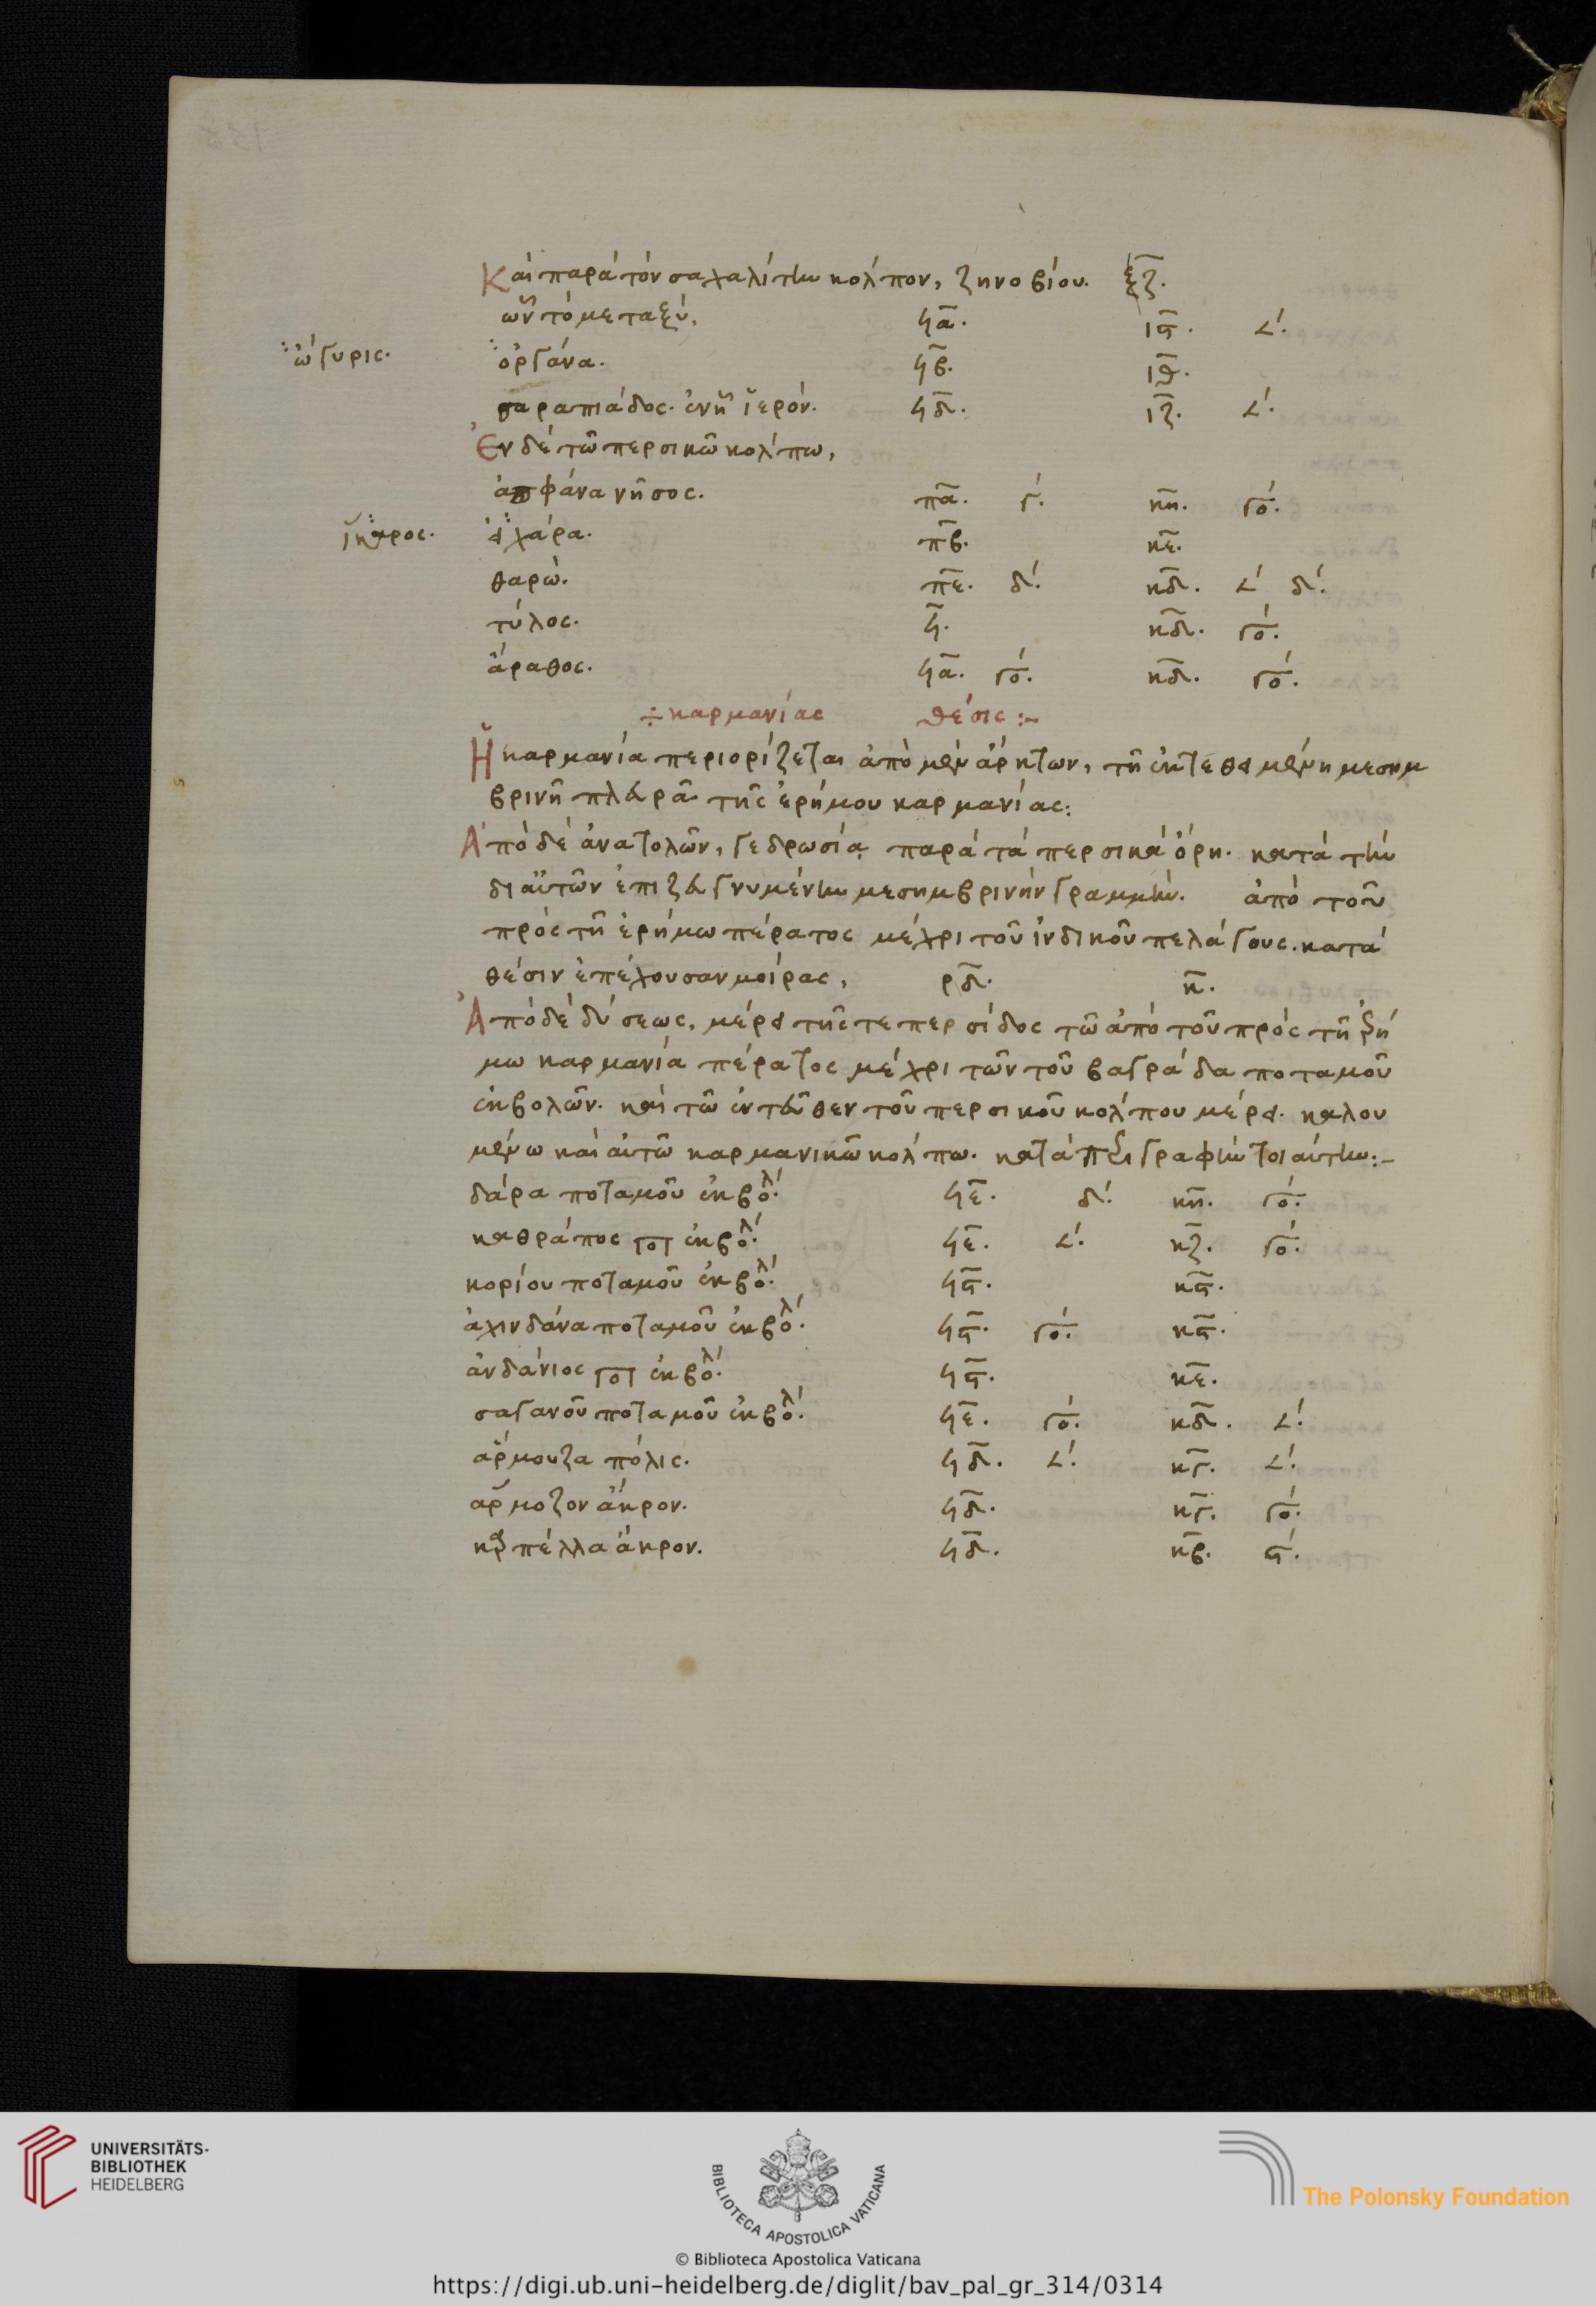 Καὶ παρὰ τὸν σαχαλίτην κόλπον, ζηνοβίου. ξζ.
ὧν τὸ μεταξύ. ϟα. ιϛ. 𐅵.
ὤγυρις. ὀργάνα. ϟβ. ιθ.
σαραπιάδος. ἐν ἧ ἱερόν. ϟδ. ιζ. 𐅵.
Ἐν δὲ τῶ περσικῶ κόλπω,
ἀπφάνα νῆσος. πα. γ. κη. γο.
ἴκαρος. ἰχάρα. πβ. κε.
θαρώ. πε. δ. κδ. 𐅵 δ.
τύλος. ϟ. κδ. γο.
ἄραθος. ϟα. γο. κδ. γο.
÷ καρμανίας θέσις :~
Ἡ καρμανία περιορίζεται ἀπὸ μὲν ἄρκτων, τῆ ἐκτεθειμένη μεσημ
βρινῆ πλευρᾶ τῆς ἐρήμου καρμανίας:
Ἀπὸ δὲ ἀνατολῶν, γεδρωσία παρὰ τὰ περσικὰ ὄρη. κατὰ τὴν
δι αὐτῶν ἐπιζευγνυμένην μεσημβρινὴν γραμμήν. ἀπὸ τοῦ
πρὸς τῆ ἐρήμω πέρατος μέχρι τοῦ ἰνδικοῦ πελάγους. κατὰ
θέσιν ἐπέχουσαν μοίρας, ρδ. κ.
Ἀπὸ δὲ δύσεως, μέρει τῆς τε περσίδος τῶ ἀπὸ τοῦ πρὸς τῆ ἐρή
μω καρμανία πέρατος μέχρι τῶν τοῦ βαγράδα ποταμοῦ
ἐκβολῶν. καὶ τῶ ἐντεῦθεν τοῦ περσικοῦ κόλπου μέρει. καλου
μένω καὶ αὐτῶ καρμανικῶ κόλπω. κατὰ περιγραφὴν τοιαύτην:-
δάρα ποταμοῦ ἐκβολ. ϟε. δ. κη. γο.
καθράπος ποτ ἐκβολ. ϟε. 𐅵. κζ. γο.
κορίου ποταμοῦ ἐκβολ. ϟϛ. κϛ.
ἀχινδάνα ποταμοῦ ἐκβολ. ϟϛ. γο. κϛ.
ἀνδάνιος ποτ ἐκβολ. ϟϛ. κε.
σαγανοῦ ποταμοῦ ἐκβολ. ϟε. γο. κδ. 𐅵.
ἅρμουζα πόλις. ϟδ. 𐅵. κγ. 𐅵.
ἅρμοζον ἄκρον. ϟδ. κγ. γο.
καρπέλλα ἄκρον. ϟδ. κβ. ϛ.
UNIVERSITÄTS-
BIBLIOTHEK
HEIDELBERG
BIBLIOTECA APOSTOLICA VATICANA
The Polonsky Foundation
© Biblioteca Apostolica Vaticana
https://digi.ub.uni-heidelberg.de/diglit/bav_pal_gr_314/0314